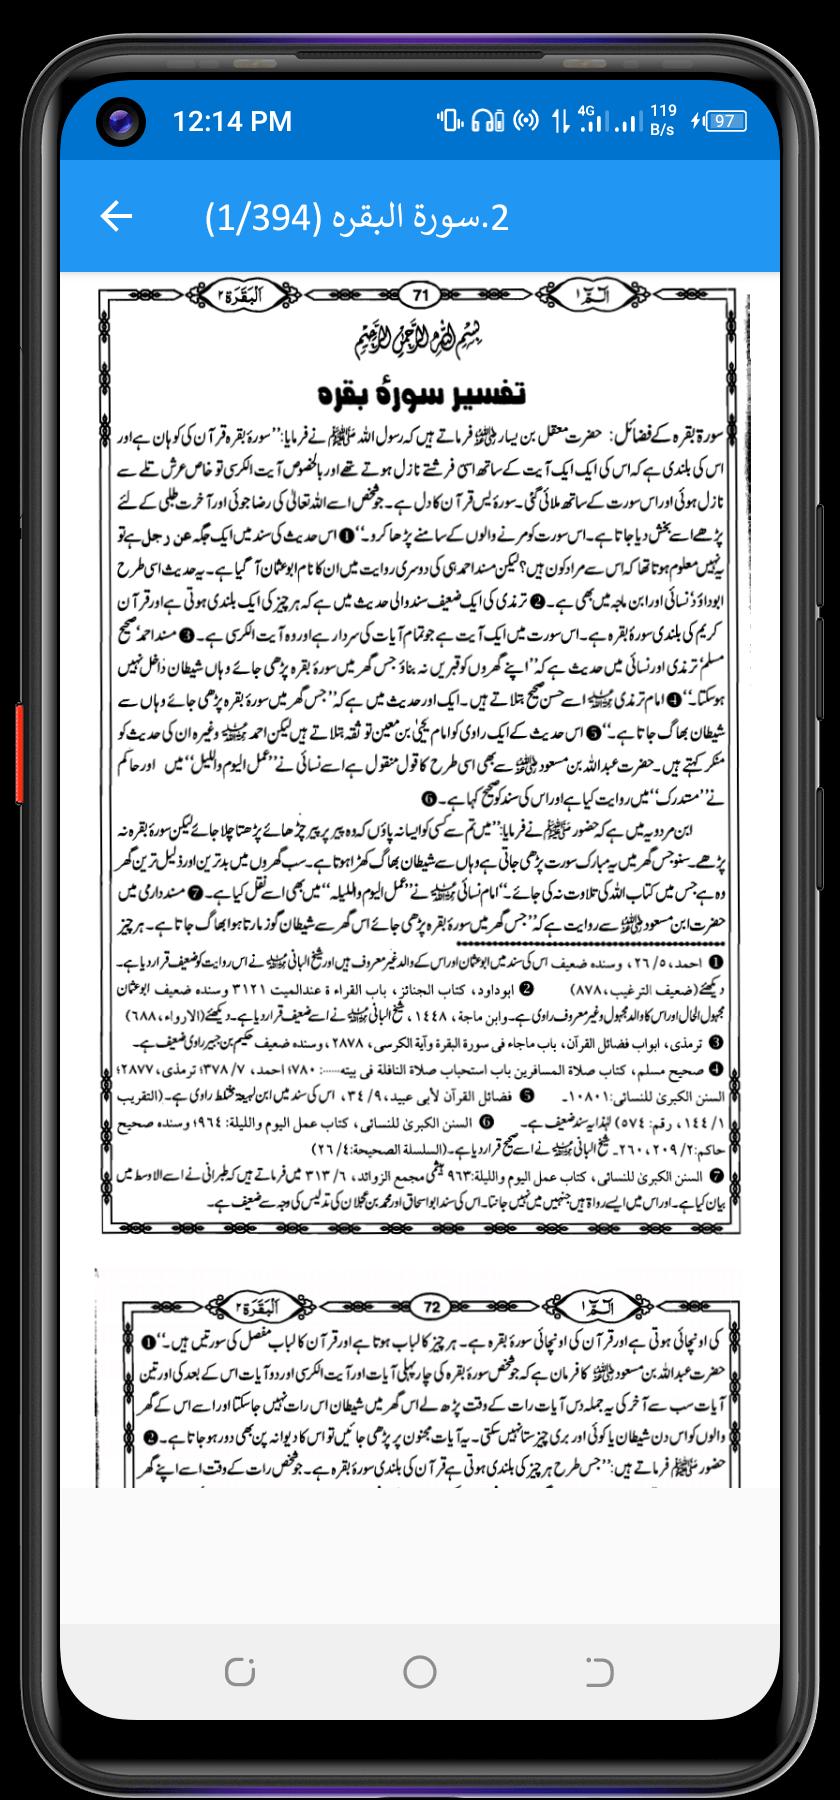 12:14 PM
4G
119 B/s
97
2.سورة البقره (1/394)
البقرة ٢
71
الٓمّٓ ١
بسم اللہ الرحمن الرحیم
تفسیر سورۂ بقرہ
سورۂ بقرہ کے فضائل: حضرت معقل بن یسار رضی اللہ عنہ فرماتے ہیں کہ رسول اللہ صلی اللہ علیہ وسلم نے فرمایا: ’’سورۂ بقرہ قرآن کی کوہان ہے اور
اس کی بلندی ہے کہ اس کی ایک ایک آیت کے ساتھ اسی فرشتے نازل ہوتے تھے اور بالخصوص آیت الکرسی تو خاص عرش تلے سے
نازل ہوئی اور اس سورت کے ساتھ ملائی گئی۔ سورۂ یٰس قرآن کا دل ہے۔ جو شخص اسے اللہ تعالیٰ کی رضا جوئی اور آخرت طلبی کے لئے
پڑھے اسے بخش دیا جاتا ہے۔ اس سورت کو مرنے والوں کے سامنے پڑھا کرو۔‘‘ ❶ اس حدیث کی سند میں ایک جگہ عن رجل ہے تو
یہ نہیں معلوم ہوتا تھا کہ اس سے مراد کون ہیں؟ لیکن مسند احمد ہی کی دوسری روایت میں ان کا نام ابو عثمان آ گیا ہے۔ یہ حدیث اسی طرح
ابوداؤد، نسائی اور ابن ماجہ میں بھی ہے۔ ❷ ترمذی کی ایک ضعیف سند والی حدیث میں ہے کہ ہر چیز کی ایک بلندی ہوتی ہے اور قرآن
کریم کی بلندی سورۂ بقرہ ہے۔ اس سورت میں ایک آیت ہے جو تمام آیات کی سردار ہے اور وہ آیت الکرسی ہے۔ ❸ مسند احمد، صحیح
مسلم، ترمذی اور نسائی میں حدیث ہے کہ ’’اپنے گھروں کو قبریں نہ بناؤ جس گھر میں سورۂ بقرہ پڑھی جائے وہاں شیطان داخل نہیں
ہو سکتا۔‘‘ ❹ امام ترمذی رحمہ اللہ اسے حسن صحیح بتلاتے ہیں۔ ایک اور حدیث میں ہے کہ ’’جس گھر میں سورۂ بقرہ پڑھی جائے وہاں سے
شیطان بھاگ جاتا ہے۔‘‘ ❺ اس حدیث کے ایک راوی کو امام یحییٰ بن معین تو ثقہ بتلاتے ہیں لیکن احمد رحمہ اللہ وغیرہ ان کی حدیث کو
منکر کہتے ہیں۔ حضرت عبداللہ بن مسعود رضی اللہ عنہ سے بھی اسی طرح کا قول منقول ہے اسے نسائی نے ’’عمل الیوم واللیل‘‘ میں اور حاکم
نے ’’مستدرک‘‘ میں روایت کیا ہے اور اس کی سند کو صحیح کہا ہے۔ ❻
ابن مردویہ میں ہے کہ حضور صلی اللہ علیہ وسلم نے فرمایا: ’’میں تم سے کسی کو ایسا نہ پاؤں کہ وہ پیر پر پیر چڑھائے پڑھتا چلا جائے لیکن سورۂ بقرہ نہ
پڑھے۔ سنو جس گھر میں یہ مبارک سورت پڑھی جاتی ہے وہاں سے شیطان بھاگ کھڑا ہوتا ہے۔ سب گھروں میں بدترین اور ذلیل ترین گھر
وہ ہے جس میں کتاب اللہ کی تلاوت نہ کی جائے۔‘‘ امام نسائی رحمہ اللہ نے ’’عمل الیوم واللیلہ‘‘ میں بھی اسے نقل کیا ہے۔ ❼ مسند دارمی میں
حضرت ابن مسعود رضی اللہ عنہ سے روایت ہے کہ ’’جس گھر میں سورۂ بقرہ پڑھی جائے اس گھر سے شیطان گوز مارتا ہوا بھاگ جاتا ہے۔ ہر چیز
❶ احمد، ٥/ ٢٦، وسندہ ضعیف اس کی سند میں ابو عثمان اور اس کے والد غیر معروف ہیں اور شیخ البانی رحمہ اللہ نے اس روایت کو ضعیف قرار دیا ہے۔
دیکھئے (ضعیف الترغیب، ٨٧٨) ❷ ابوداود، کتاب الجنائز، باب القراءة عندالمیت ٣١٢١ وسندہ ضعیف ابو عثمان
مجہول الحال اور اس کا والد مجہول و غیر معروف راوی ہے۔ وابن ماجة، ١٤٤٨، شیخ البانی رحمہ اللہ نے اسے ضعیف قرار دیا ہے۔ دیکھئے (الارواء، ٦٨٨)
❸ ترمذی، ابواب فضائل القرآن، باب ماجاء فی سورة البقرة وآیة الکرسی، ٢٨٧٨، وسندہ ضعیف حکیم بن جبیر راوی ضعیف ہے۔
❹ صحیح مسلم، کتاب صلاة المسافرین باب استحباب صلاة النافلة فی بیته......، ٧٨٠؛ احمد، ٧/ ٣٧٨؛ ترمذی، ٢٨٧٧؛
السنن الکبریٰ للنسائی: ١٠٨٠١۔ ❺ فضائل القرآن لأبی عبید، ٩/ ٣٤، اس کی سند میں ابن لہیعۃ مختلط راوی ہے۔ (التقریب
١/ ١٤٤، رقم: ٥٧٤) لہٰذا یہ سند ضعیف ہے۔ ❻ السنن الکبریٰ للنسائی، کتاب عمل الیوم واللیلة: ٩٦٤؛ وسندہ صحیح
حاکم: ٢/ ٢٠٩، ٢٦٠۔ شیخ البانی رحمہ اللہ نے اسے صحیح قرار دیا ہے۔ (السلسلة الصحیحة: ٤/ ٢٦)
❼ السنن الکبریٰ للنسائی، کتاب عمل الیوم واللیلة: ٩٦٣ ہیثمی مجمع الزوائد، ٦/ ٣١٣ میں فرماتے ہیں کہ طبرانی نے اسے الاوسط میں
بیان کیا ہے۔ اور اس میں ایسے رواۃ ہیں جنہیں میں نہیں جانتا۔ اس کی سند ابو اسحاق اور محمد بن عجلان کی تدلیس کی وجہ سے ضعیف ہے۔
البقرة ٢
72
الٓمّٓ ١
کی اونچائی ہوتی ہے اور قرآن کی اونچائی سورۂ بقرہ ہے۔ ہر چیز کا لباب ہوتا ہے اور قرآن کا لباب مفصل کی سورتیں ہیں۔‘‘ ❶
حضرت عبداللہ بن مسعود رضی اللہ عنہ کا فرمان ہے کہ جو شخص سورۂ بقرہ کی چار پہلی آیات اور آیت الکرسی اور دو آیات اس کے بعد کی اور تین
آیات سب سے آخر کی یہ جملہ دس آیات رات کے وقت پڑھ لے اس گھر میں شیطان اس رات نہیں جا سکتا اور اسے اس کے گھر
والوں کو اس دن شیطان یا کوئی اور بری چیز ستا نہیں سکتی۔ یہ آیات مجنون پر پڑھی جائیں تو اس کا دیوانہ پن بھی دور ہو جاتا ہے۔ ❷
حضور صلی اللہ علیہ وسلم فرماتے ہیں: ’’جس طرح ہر چیز کی بلندی ہوتی ہے قرآن کی بلندی سورۂ بقرہ ہے۔ جو شخص رات کے وقت اسے اپنے گھر